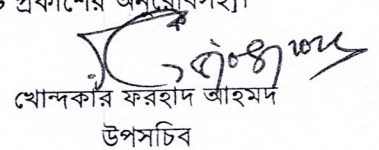 প্রকাশের অনুরোধসহ)।
খোন্দকার ফরহাদ আহমদ
উপসচিব